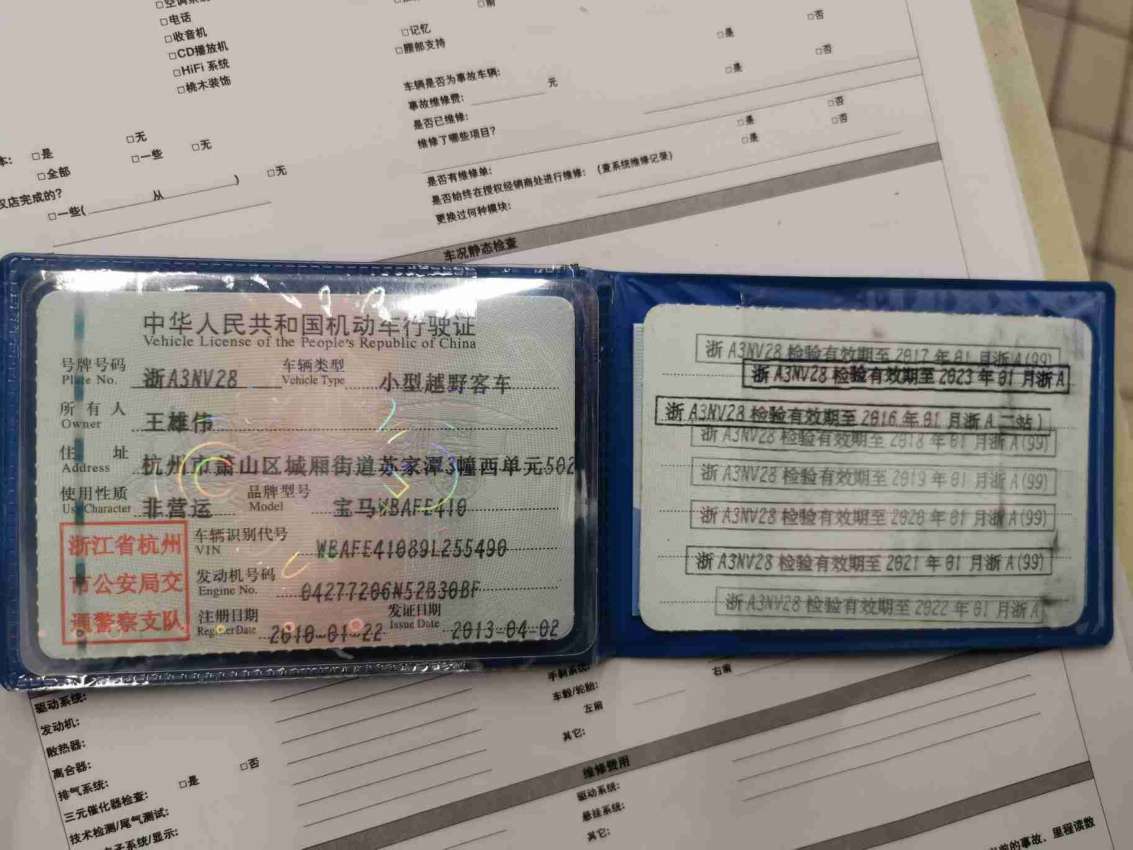 □电话
□收音机
□CD播放机
□HiFi 系统
□桃木装饰
□记忆
□腰部支持
□是 □否
车辆是否为事故车辆:
□是 □否
事故维修费: 元
是否已维修:
□是 □否
维修了哪些项目?
□是 □否
是否有维修单:
是否始终在授权经销商处进行维修: (查系统维修记录)
更换过何种模块:
□是 □无
□全部 □一些 □无
店完成的?
□一些( 从 ) □无
车况静态检查
中华人民共和国机动车行驶证
Vehicle License of the People's Republic of China
号牌号码 浙A3NV28 车辆类型 小型越野客车
Plate No. Vehicle Type
所有人 王雄伟
Owner
住址 杭州市萧山区城厢街道苏家潭3幢西单元502
Address
使用性质 非营运 品牌型号 宝马WBAFE410
Use Character Model
浙江省杭州
市公安局交
通警察支队
车辆识别代号 WBAFE41089L255490
VIN
发动机号码 04277206N52B30BF
Engine No.
注册日期 2010-01-22 发证日期 2013-04-02
Register Date Issue Date
浙A3NV28 检验有效期至 2017 年 01 月浙A(99)
浙A3NV28 检验有效期至 2023 年 01 月浙A
浙A3NV28 检验有效期至 2016 年 01 月浙A 二站)
浙A3NV28 检验有效期至 2018 年 01 月浙A(99)
浙A3NV28 检验有效期至 2019 年 01 月浙A(99)
浙A3NV28 检验有效期至 2020 年 01 月浙A(99)
浙A3NV28 检验有效期至 2021 年 01 月浙A(99)
浙A3NV28 检验有效期至 2022 年 01 月浙A
驱动系统:
发动机:
散热器:
离合器:
排气系统:
三元催化器检查: □是 □否
技术检测/尾气测试:
子系统/显示:
手刹系统:
车毂/轮胎:
左前 右前
其它:
维修费用
驱动系统:
悬挂系统:
其它:
前的事故、里程读数